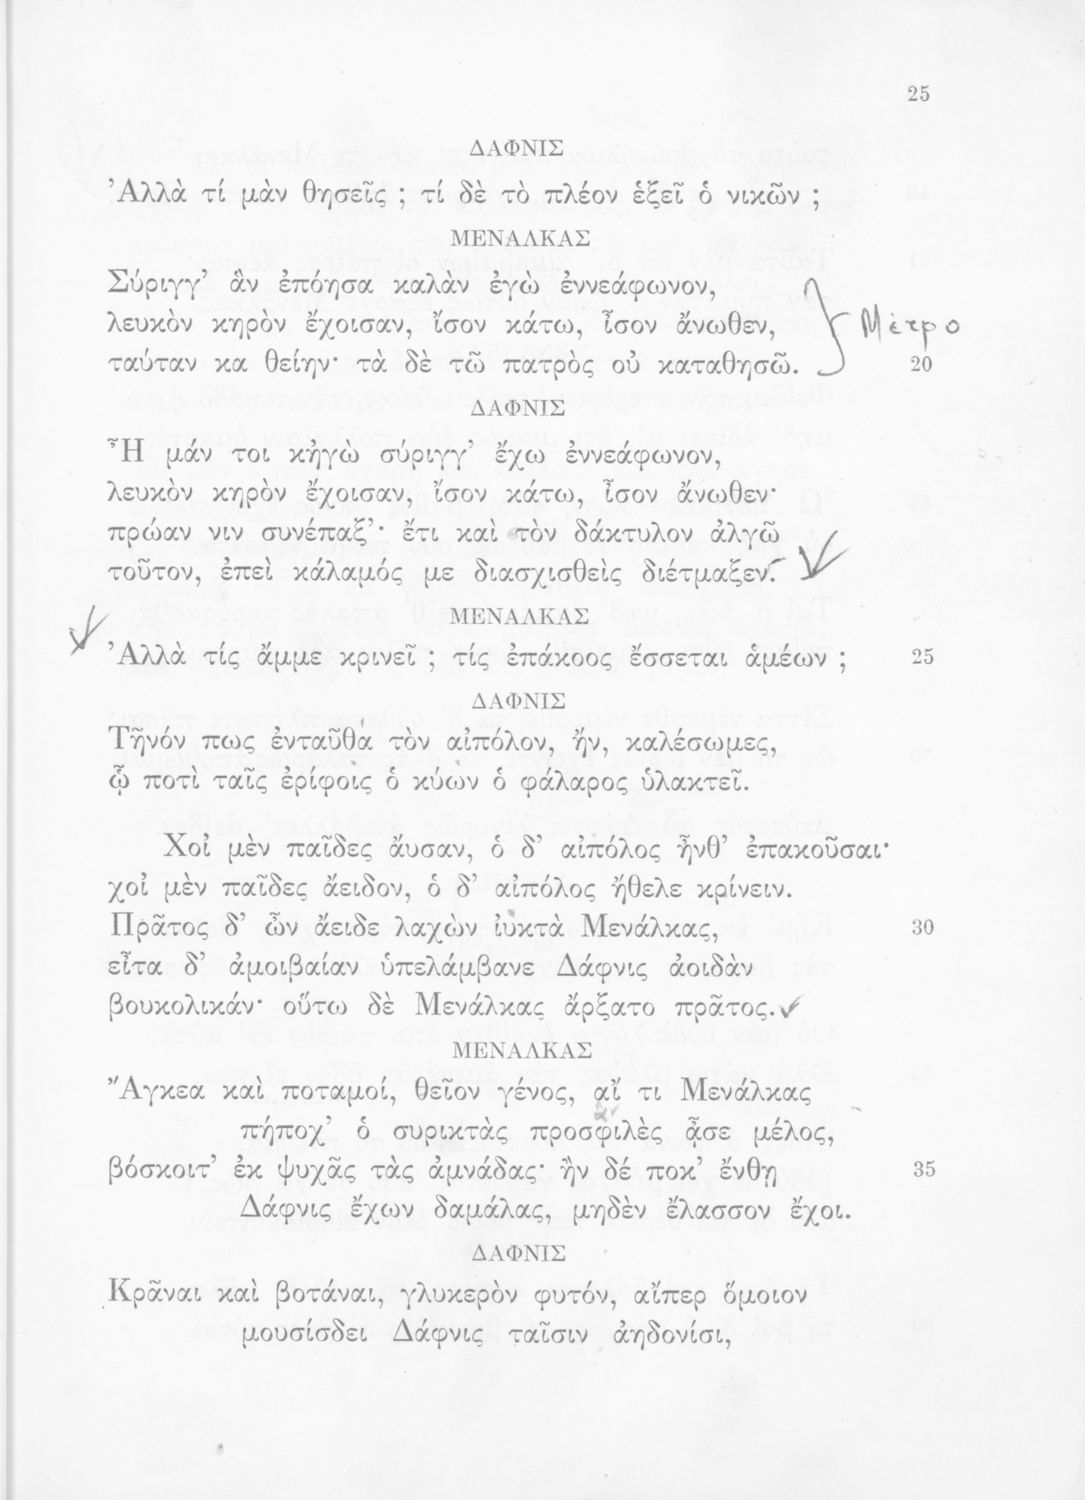 25
ΔΑΦΝΙΣ
Ἀλλὰ τί μὰν θησεῖς ; τί δὲ τὸ πλέον ἑξεῖ ὁ νικῶν ;
ΜΕΝΑΛΚΑΣ
Σύριγγ’ ἃν ἐπόησα καλὰν ἐγὼ ἐννεάφωνον,
λευκὸν κηρὸν ἔχοισαν, ἴσον κάτω, ἶσον ἄνωθεν,
Μέτρο
ταύταν κα θείην· τὰ δὲ τῶ πατρὸς οὐ καταθησῶ. 20
ΔΑΦΝΙΣ
Ἦ μάν τοι κἠγὼ σύριγγ’ ἔχω ἐννεάφωνον,
λευκὸν κηρὸν ἔχοισαν, ἴσον κάτω, ἶσον ἄνωθεν·
πρώαν νιν συνέπαξ’· ἔτι καὶ τὸν δάκτυλον ἀλγῶ
τοῦτον, ἐπεὶ κάλαμός με διασχισθεὶς διέτμαξεν.
ΜΕΝΑΛΚΑΣ
Ἀλλὰ τίς ἄμμε κρινεῖ ; τίς ἐπάκοος ἔσσεται ἁμέων ; 25
ΔΑΦΝΙΣ
Τῆνόν πως ἐνταῦθα τὸν αἰπόλον, ἤν, καλέσωμες,
ᾧ ποτὶ ταῖς ἐρίφοις ὁ κύων ὁ φάλαρος ὑλακτεῖ.
Χοἰ μὲν παῖδες ἄυσαν, ὁ δ’ αἰπόλος ἦνθ’ ἐπακοῦσαι·
χοἰ μὲν παῖδες ἄειδον, ὁ δ’ αἰπόλος ἤθελε κρίνειν.
Πρᾶτος δ’ ὦν ἄειδε λαχὼν ἰυκτὰ Μενάλκας, 30
εἶτα δ’ ἀμοιβαίαν ὑπελάμβανε Δάφνις ἀοιδὰν
βουκολικάν· οὕτω δὲ Μενάλκας ἄρξατο πρᾶτος.
ΜΕΝΑΛΚΑΣ
Ἄγκεα καὶ ποταμοί, θεῖον γένος, αἴ τι Μενάλκας
πήποχ’ ὁ συρικτὰς προσφιλὲς ᾆσε μέλος,
βόσκοιτ’ ἐκ ψυχᾶς τὰς ἀμνάδας· ἢν δέ ποκ’ ἔνθῃ 35
Δάφνις ἔχων δαμάλας, μηδὲν ἔλασσον ἔχοι.
ΔΑΦΝΙΣ
Κρᾶναι καὶ βοτάναι, γλυκερὸν φυτόν, αἴπερ ὅμοιον
μουσίσδει Δάφνις ταῖσιν ἀηδονίσι,